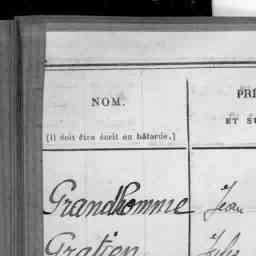 NOM. PRÉ
[il doit être écrit en bâtarde.] ET SU
Grandhomme Jean
Gratien Jule